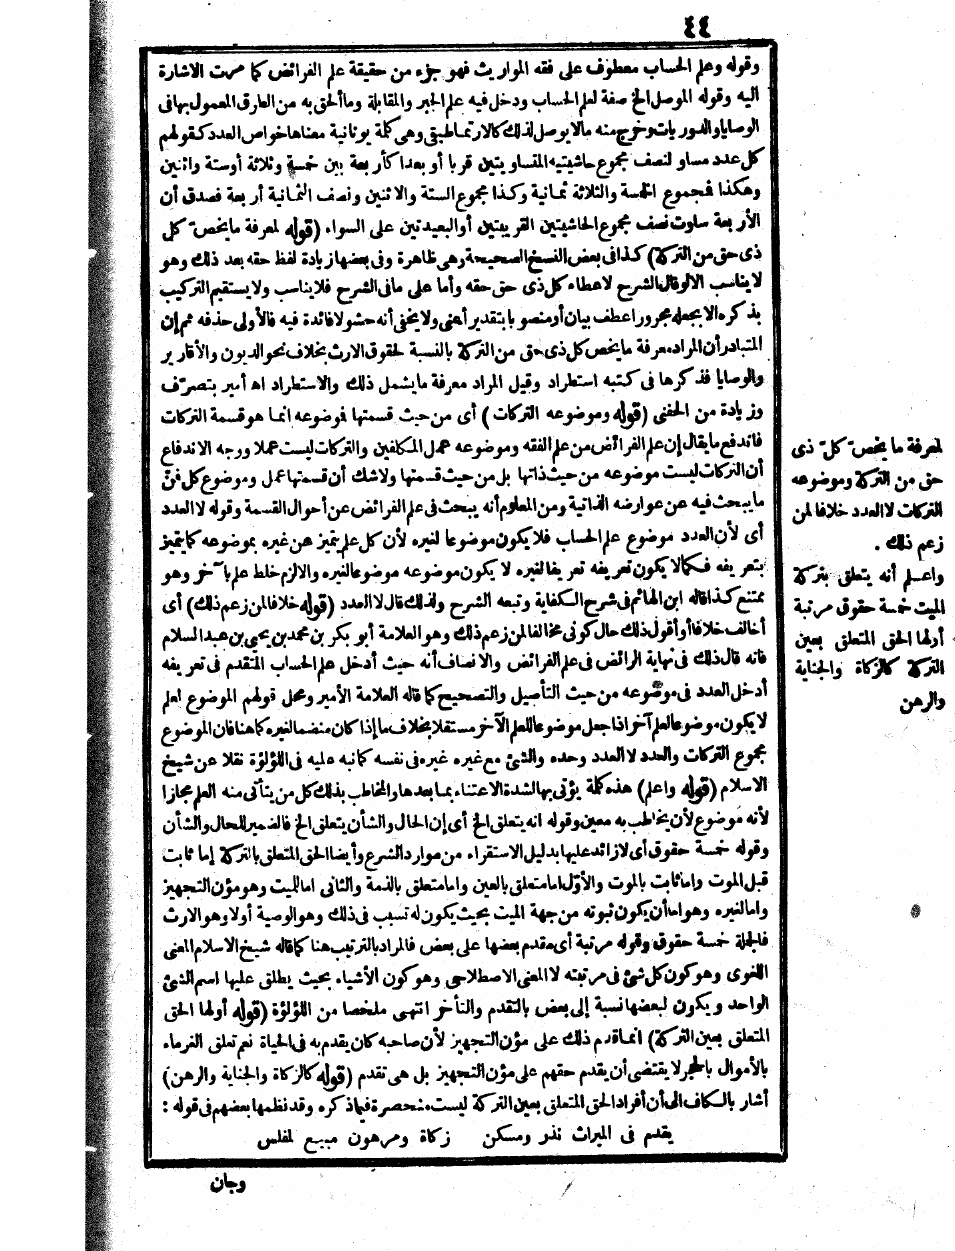 ٤٤
وقوله وعلم الحساب معطوف على فقه المواريث فهو جزء من حقيقة علم الفرائض كما مرت الاشارة
اليه وقوله الموصل الخ صفة لعلم الحساب ودخل فيه علم الجبر والمقابلة وما ألحق به من الطرق المعمول بها فى
الوصايا والدوريات وخرج منه مالا يوصل لذلك كالارتماطيقى وهى كلمة يونانية معناها خواص العدد كقولهم
كل عدد مساو لنصف مجموع حاشيتيه المتساويتين قربا أو بعدا كأربعة بين خمسة وثلاثة أوستة واثنين
وهكذا فمجموع الخمسة والثلاثة ثمانية وكذا مجموع الستة والاثنين ونصف الثمانية أربعة فصدق أن
الأربعة ساوت نصف مجموع الحاشيتين القريبتين أو البعيدتين على السواء (قوله لمعرفة ما يخصّ كل
ذى حق من التركة) كذا فى بعض النسخ الصحيحة وهى ظاهرة وفى بعضها زيادة لفظ حقه بعد ذلك وهو
لا يناسب الا لو قال الشرح لاعطاء كل ذى حق حقه وأما على ما فى الشرح فلا يناسب ولا يستقيم التركيب
بذكره الا بجعله مجرورا عطف بيان أو منصوبا بتقدير أعنى ولا يخفى أنه حشو لا فائدة فيه فالأولى حذفه ثم إن
المتبادر أن المراد معرفة ما يخص كل ذى حق من التركة بالنسبة لحقوق الارث بخلاف نحو الديون والأقارير
والوصايا فذكرها فى كتبه استطراد وقيل المراد معرفة ما يشمل ذلك والاستطراد اه أمير بتصرّف
وزيادة من الحفنى (قوله وموضوعه التركات) أى من حيث قسمتها فموضوعه انما هو قسمة التركات
فاندفع ما يقال إن علم الفرائض من علم الفقه وموضوعه عمل المكلفين والتركات ليست عملا ووجه الاندفاع
أن التركات ليست موضوعه من حيث ذاتها بل من حيث قسمتها ولا شك أن قسمتها عمل وموضوع كل فنّ
ما يبحث فيه عن عوارضه الذاتية ومن المعلوم أنه يبحث فى علم الفرائض عن أحوال القسمة وقوله لا العدد
أى لأن العدد موضوع علم الحساب فلا يكون موضوعا لغيره لأن كل علم يتميز عن غيره بموضوعه كما يتميز
بتعريفه فكما لا يكون تعريفه تعريفا لغيره لا يكون موضوعه موضوعا لغيره والالزم خلط علم بآخر وهو
ممتنع كذا قاله ابن الهائم فى شرح الكفاية وتبعه الشرح ولذلك قال لا العدد (قوله خلافا لمن زعم ذلك) أى
أخالف خلافا أو أقول ذلك حال كونى مخالفا لمن زعم ذلك وهو العلامة أبو بكر بن محمد بن يحيى بن عبد السلام
فانه قال ذلك فى نهاية الرائض فى علم الفرائض والانصاف أنه حيث أدخل علم الحساب المتقدم فى تعريفه
أدخل العدد فى موضوعه من حيث التأصيل والتصحيح كما قاله العلامة الأمير ومحل قولهم الموضوع لعلم
لا يكون موضوعا لعلم آخر اذا جعل موضوعا للعلم الآخر مستقلا بخلاف ما إذا كان منضما لغيره كما هنا فان الموضوع
مجموع التركات والعدد لا العدد وحده والشئ مع غيره غيره فى نفسه كما نبه عليه فى اللؤلؤة نقلا عن شيخ
الاسلام (قوله واعلم) هذه كلمة يؤتى بها لشدة الاعتناء بما بعدها والمخاطب بذلك كل من يتأتى منه العلم مجازا
لأنه موضوع لأن يخاطب به معين وقوله انه يتعلق الخ أى إن الحال والشأن يتعلق الخ فالضمير للحال والشأن
وقوله خمسة حقوق أى لا زائد عليها بدليل الاستقراء من موارد الشرع وأيضا الحق المتعلق بالتركة إما ثابت
قبل الموت واما ثابت بالموت والأوّل اما متعلق بالعين واما متعلق بالذمة والثانى اما للميت وهو مؤن التجهيز
واما لغيره وهو اما أن يكون ثبوته من جهة الميت بحيث يكون له تسبب فى ذلك وهو الوصية أولا وهو الارث
فالجملة خمسة حقوق وقوله مرتبة أى مقدم بعضها على بعض فالمراد بالترتيب هنا كما قاله شيخ الاسلام المعنى
اللغوى وهو كون كل شئ فى مرتبته لا المعنى الاصطلاحى وهو كون الأشياء بحيث يطلق عليها اسم الشئ
الواحد ويكون لبعضها نسبة إلى بعض بالتقدم والتأخر انتهى ملخصا من اللؤلؤة (قوله أولها الحق
المتعلق بعين التركة) انما قدم ذلك على مؤن التجهيز لأن صاحبه كان يقدم به فى الحياة نعم تعلق الغرماء
بالأموال بالحجر لا يقتضى أن يقدم حقهم على مؤن التجهيز بل هى تقدم (قوله كالزكاة والجناية والرهن)
أشار بالكاف الى أن أفراد الحق المتعلق بعين التركة ليست منحصرة فيما ذكره وقد نظمها بعضهم فى قوله :
يقدم فى الميراث نذر ومسكن زكاة ومرهون مبيع لمفلس
وجان
لمعرفة ما يخصّ كلّ ذى
حق من التركة وموضوعه
التركات لا العدد خلافا لمن
زعم ذلك .
واعلم أنه يتعلق بتركة
الميت خمسة حقوق مرتبة
أولها الحق المتعلق بعين
التركة كالزكاة والجناية
والرهن